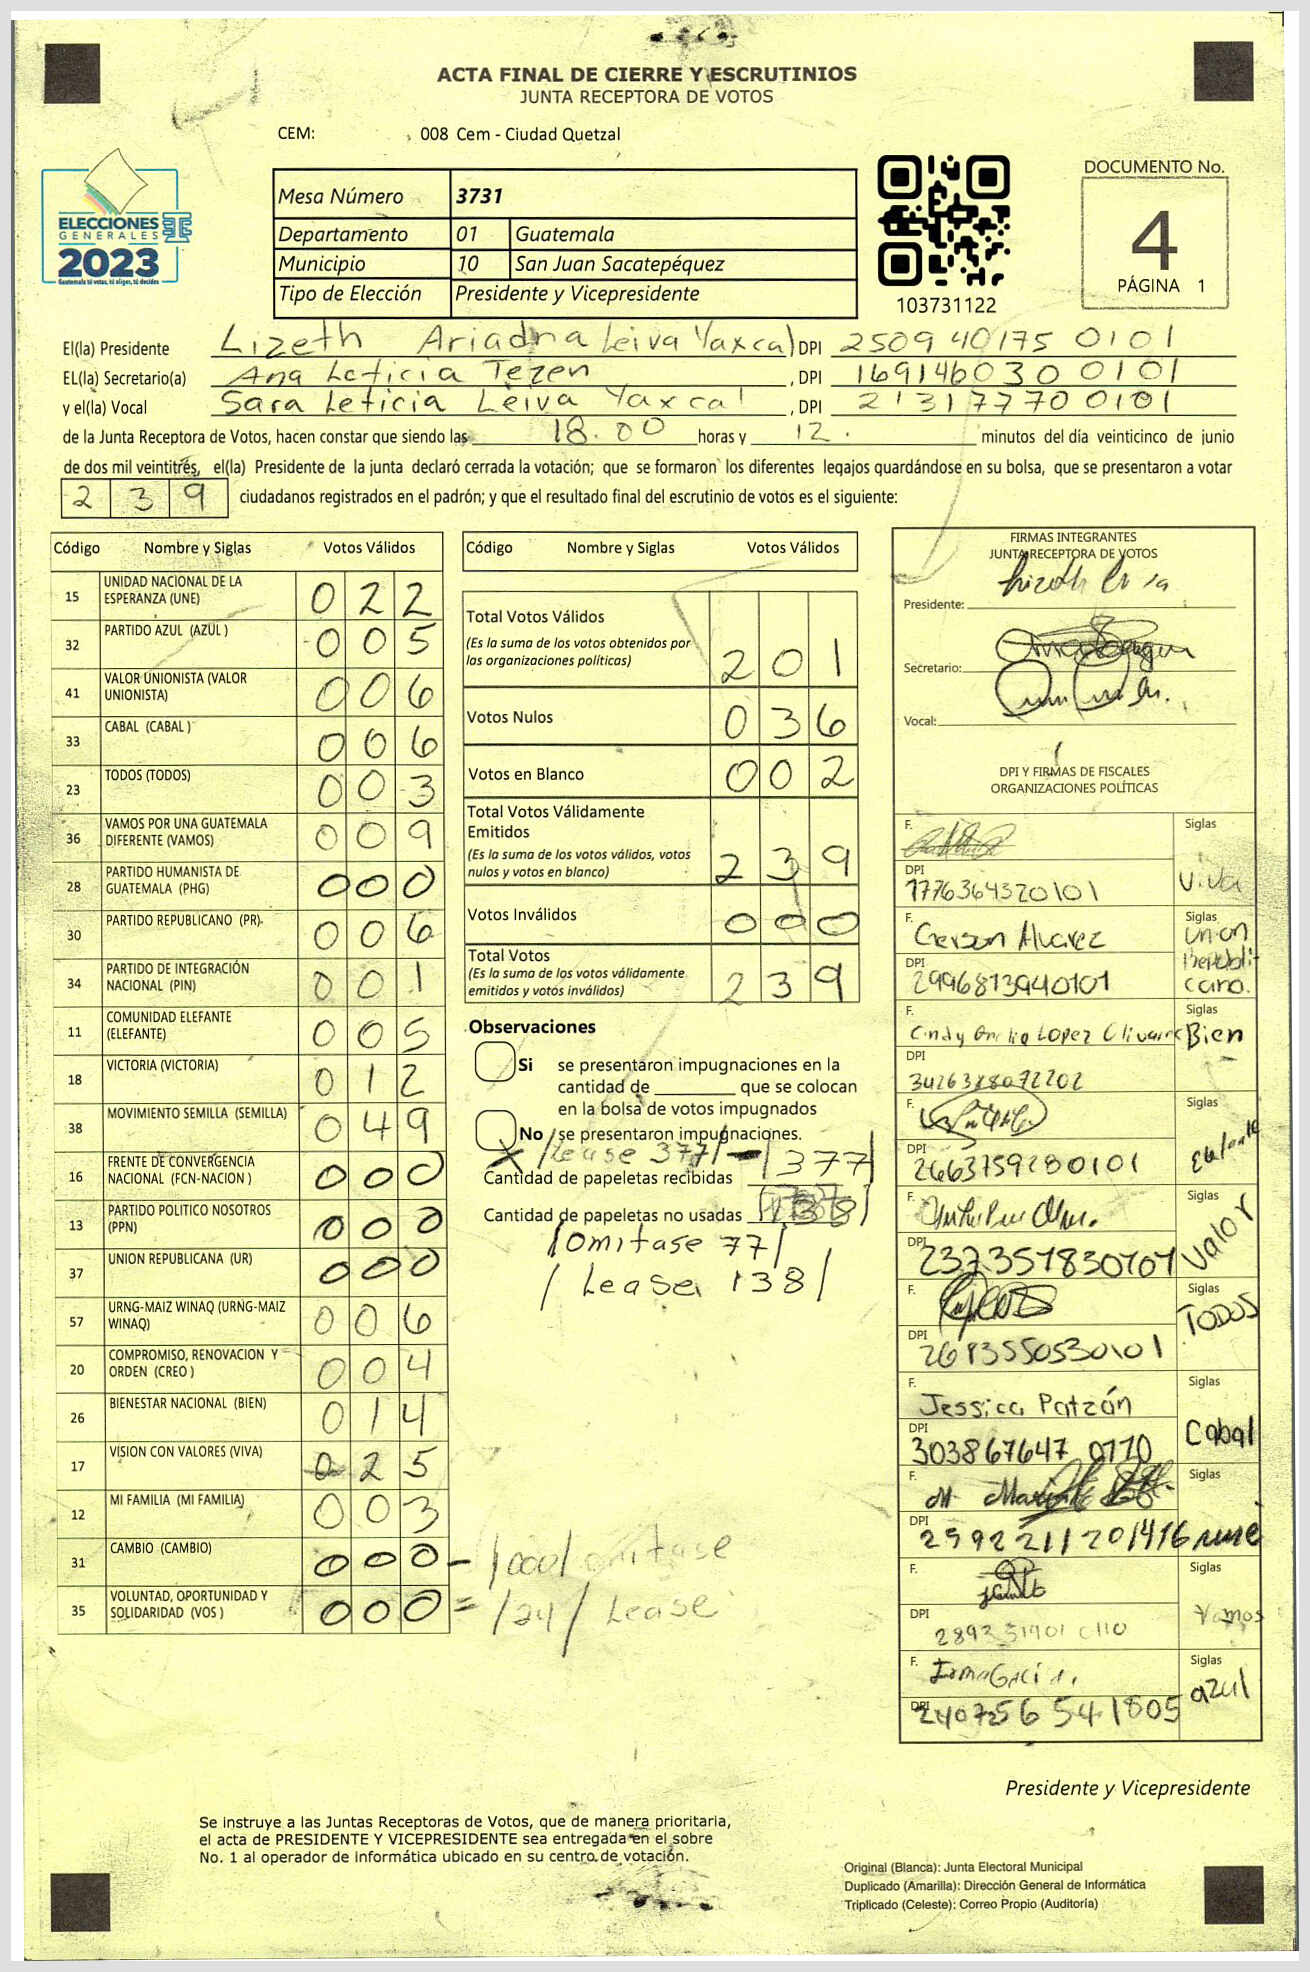 ACTA FINAL DE CIERRE Y ESCRUTINIOS
JUNTA RECEPTORA DE VOTOS
CEM: 008 Cem - Ciudad Quetzal
ELECCIONES
GENERALES
2023
Guatemala tú votas, tú eliges, tú decides
Mesa Número 3731
Departamento 01 Guatemala
Municipio 10 San Juan Sacatepéquez
Tipo de Elección Presidente y Vicepresidente
103731122
DOCUMENTO No.
4
PÁGINA 1
El(la) Presidente Lizeth Ariadna Leiva Yaxcal DPI 250940175 0101
EL(la) Secretario(a) Ana Leticia Tezen , DPI 169146030 0101
y el(la) Vocal Sara Leticia Leiva Yaxcal , DPI 213177700101
de la Junta Receptora de Votos, hacen constar que siendo las 18.00 horas y 12. minutos del día veinticinco de junio
de dos mil veintitrés, el(la) Presidente de la junta declaró cerrada la votación; que se formaron los diferentes legajos quardándose en su bolsa, que se presentaron a votar
239 ciudadanos registrados en el padrón; y que el resultado final del escrutinio de votos es el siguiente:
Código Nombre y Siglas Votos Válidos
15 UNIDAD NACIONAL DE LA ESPERANZA (UNE) 022
32 PARTIDO AZUL (AZUL ) 005
41 VALOR UNIONISTA (VALOR UNIONISTA) 006
33 CABAL (CABAL ) 006
23 TODOS (TODOS) 003
36 VAMOS POR UNA GUATEMALA DIFERENTE (VAMOS) 009
28 PARTIDO HUMANISTA DE GUATEMALA (PHG) 000
30 PARTIDO REPUBLICANO (PR) 006
34 PARTIDO DE INTEGRACIÓN NACIONAL (PIN) 001
11 COMUNIDAD ELEFANTE (ELEFANTE) 005
18 VICTORIA (VICTORIA) 012
38 MOVIMIENTO SEMILLA (SEMILLA) 049
16 FRENTE DE CONVERGENCIA NACIONAL (FCN-NACION ) 000
13 PARTIDO POLITICO NOSOTROS (PPN) 000
37 UNION REPUBLICANA (UR) 000
57 URNG-MAIZ WINAQ (URNG-MAIZ WINAQ) 006
20 COMPROMISO, RENOVACION Y ORDEN (CREO ) 004
26 BIENESTAR NACIONAL (BIEN) 014
17 VISION CON VALORES (VIVA) 025
12 MI FAMILIA (MI FAMILIA) 003
31 CAMBIO (CAMBIO) 000 - /000/ omitase
35 VOLUNTAD, OPORTUNIDAD Y SOLIDARIDAD (VOS ) 000 = /24/ Lease
Código Nombre y Siglas Votos Válidos
Total Votos Válidos
(Es la suma de los votos obtenidos por
las organizaciones políticas) 201
Votos Nulos 036
Votos en Blanco 002
Total Votos Válidamente
Emitidos
(Es la suma de los votos válidos, votos
nulos y votos en blanco) 239
Votos Inválidos 000
Total Votos
(Es la suma de los votos válidamente
emitidos y votos inválidos) 239
Observaciones
Si se presentaron impugnaciones en la
cantidad de que se colocan
en la bolsa de votos impugnados
No se presentaron impugnaciones.
X /Lease 377/ - /377/
Cantidad de papeletas recibidas
Cantidad de papeletas no usadas
/omitase 77/
/ Lease 138/
FIRMAS INTEGRANTES
JUNTA RECEPTORA DE VOTOS
Presidente:
Secretario:
Vocal:
DPI Y FIRMAS DE FISCALES
ORGANIZACIONES POLÍTICAS
F. Siglas
DPI 1776364320101 Viva
F. Gerson Alvarez Siglas Union
DPI 2996813940101 cano.
F. Cindy Lopez Siglas Bien
DPI 3426388072202
F. Siglas
DPI 2663759280101
F. Siglas Valor
DPI 237357830101
F. Siglas TODOS
DPI 2683550530101
F. Jessica Patzán Siglas Cabal
DPI 303867647 0110
F. Siglas
DPI 2992211201416 une
F. Siglas Vamos
DPI
F. Siglas azul
DPI 2407256541805
Presidente y Vicepresidente
Se instruye a las Juntas Receptoras de Votos, que de manera prioritaria,
el acta de PRESIDENTE Y VICEPRESIDENTE sea entregada en el sobre
No. 1 al operador de informática ubicado en su centro de votación.
Original (Blanca): Junta Electoral Municipal
Duplicado (Amarilla): Dirección General de Informática
Triplicado (Celeste): Correo Propio (Auditoría)